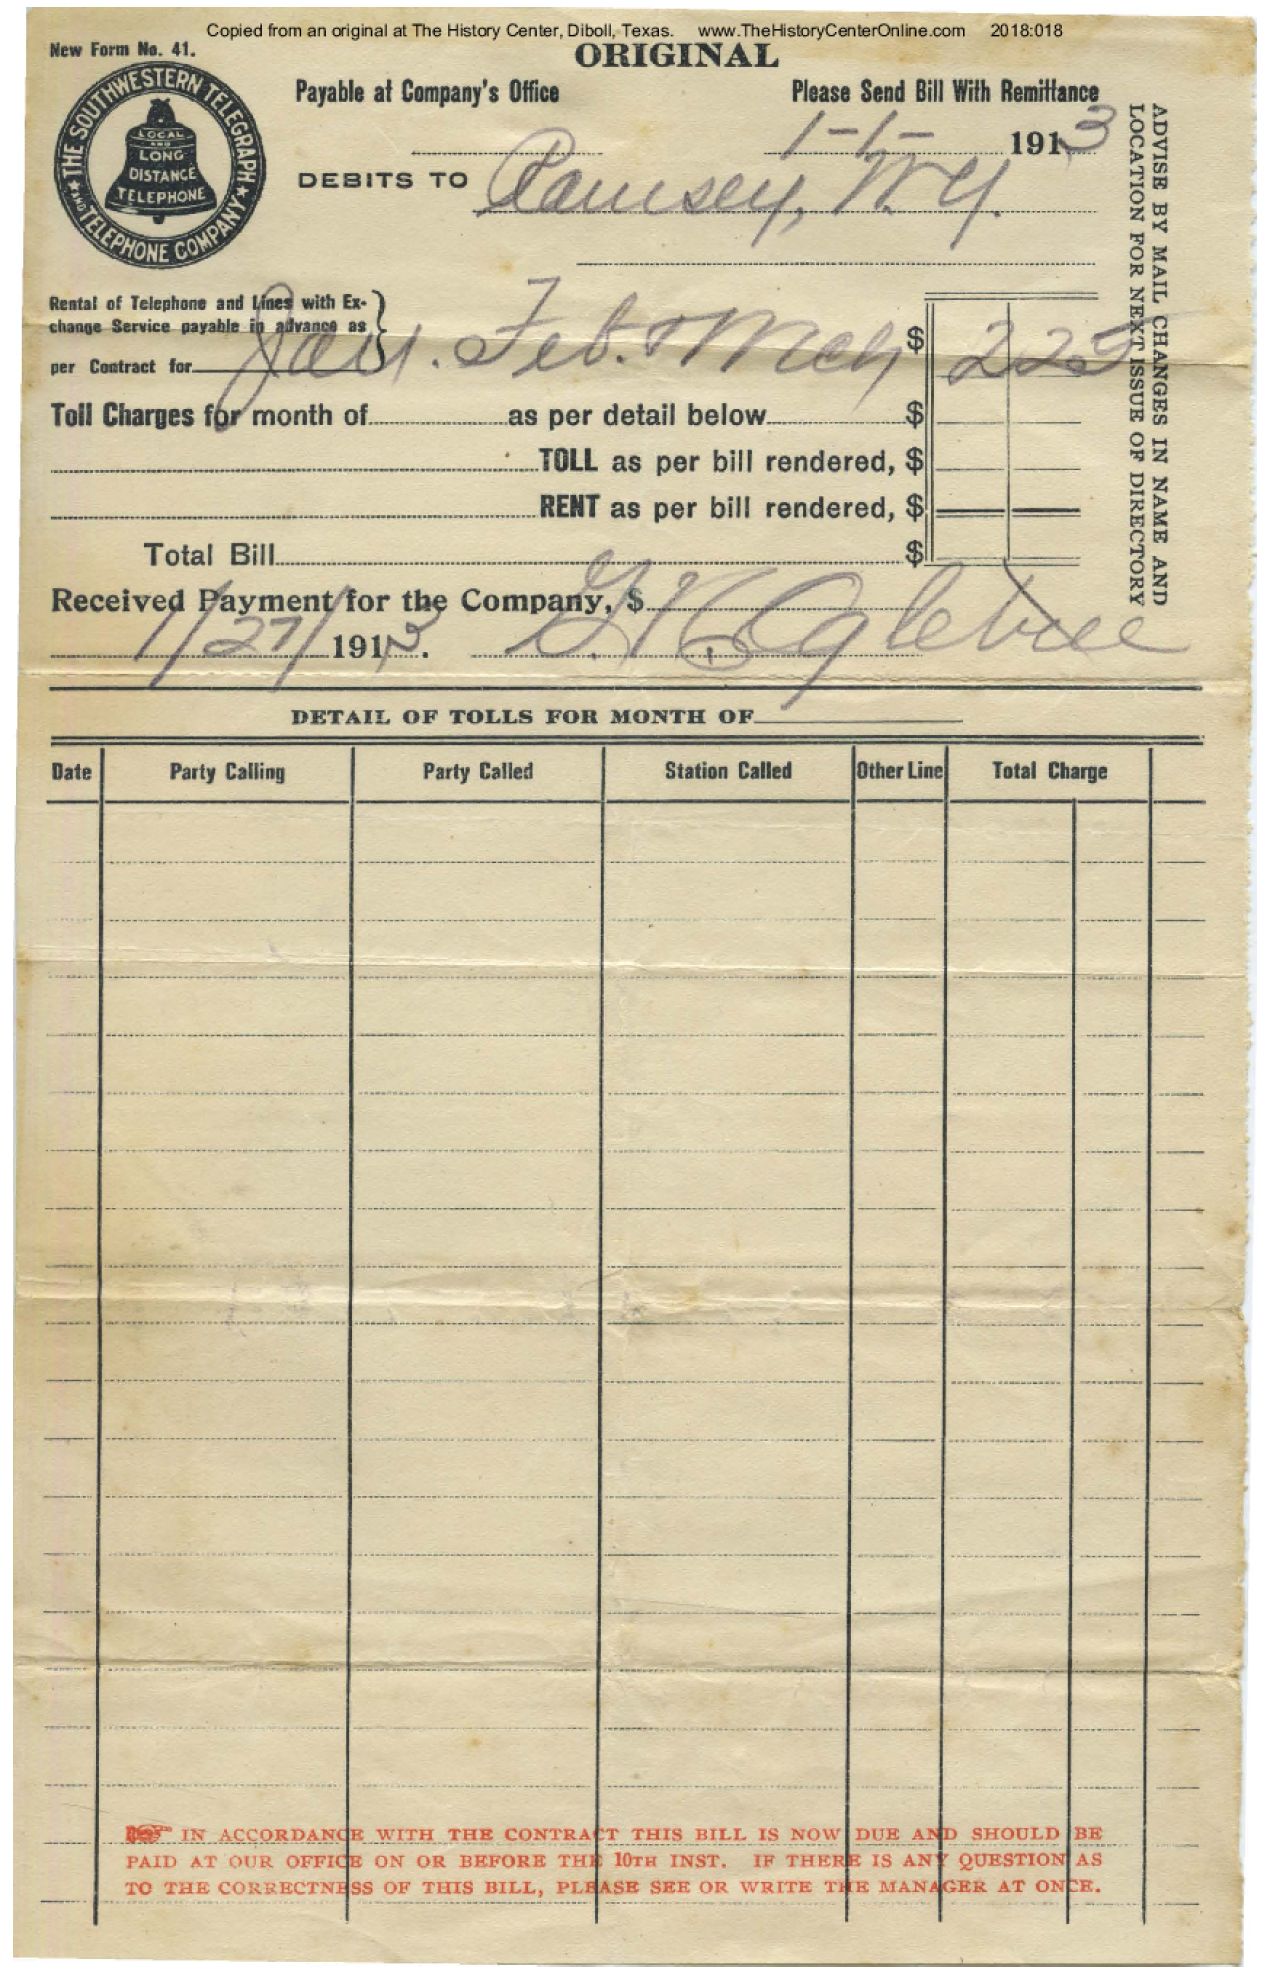 Copied from an original at The History Center, Diboll, Texas. www.TheHistoryCenterOnline.com 2018:018
New Form No. 41.
ORIGINAL
THE SOUTHWESTERN TELEGRAPH
AND TELEPHONE COMPANY
LOCAL
AND
LONG
DISTANCE
TELEPHONE
Payable at Company's Office Please Send Bill With Remittance
1-1- 1913
DEBITS TO Ramsey, W. Y.
ADVISE BY MAIL CHANGES IN NAME AND
LOCATION FOR NEXT ISSUE OF DIRECTORY
Rental of Telephone and Lines with Ex-
change Service payable in advance as
per Contract for Jan. Feb. & Mch $ 2 25
Toll Charges for month of as per detail below $
TOLL as per bill rendered, $
RENT as per bill rendered, $
Total Bill $
Received Payment for the Company, $
1/27/ 1913. Oglebee
DETAIL OF TOLLS FOR MONTH OF
Date Party Calling Party Called Station Called Other Line Total Charge
IN ACCORDANCE WITH THE CONTRACT THIS BILL IS NOW DUE AND SHOULD BE
PAID AT OUR OFFICE ON OR BEFORE THE 10TH INST. IF THERE IS ANY QUESTION AS
TO THE CORRECTNESS OF THIS BILL, PLEASE SEE OR WRITE THE MANAGER AT ONCE.